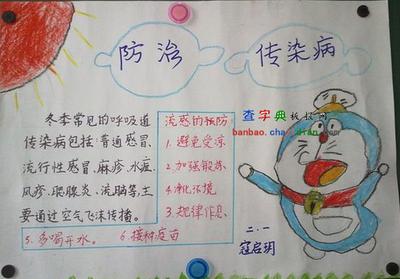 防治
传染病
查字典板报网
banbao.chazidian.com
冬季常见的呼吸道
传染病包括:普通感冒,
流行性感冒、麻疹、水痘
风疹、腮腺炎、流脑等,主
要通过空气飞沫传播。
流感的预防
1.避免受凉
2.加强锻炼
4.净化环境
3.规律作息
5.多喝开水。 6.接种疫苗
二.1
寇启玥